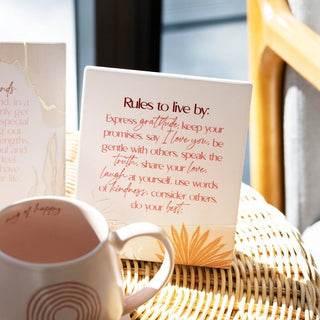 Rules to live by:
Express gratitude, keep your
promises, say I love you, be
gentle with others, speak the
truth, share your love,
laugh at yourself, use words
of kindness, consider others,
do your best.
nd, in a
only get
special
g out
engths,
ul and
feel
have
r life.
mug of happy